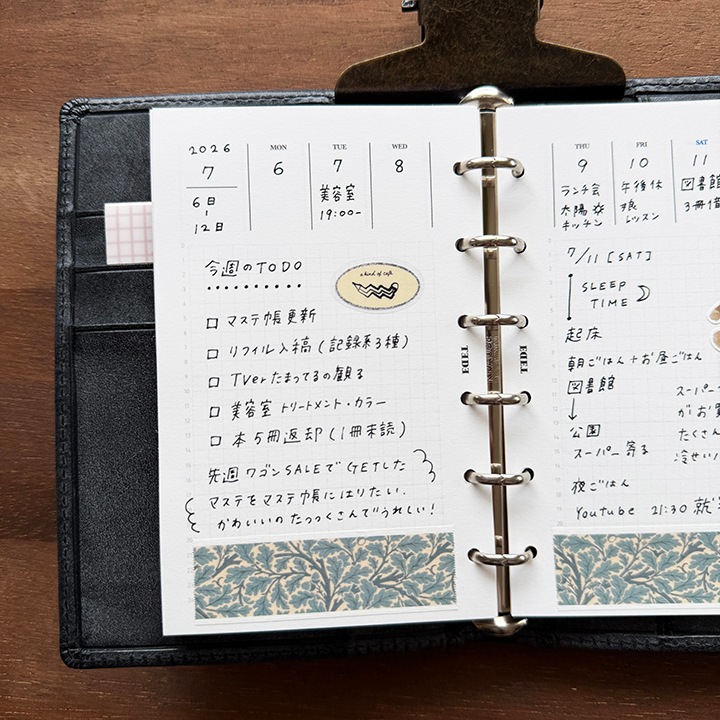 2026
7
6日
12日
MON
6
TUE
7
美容室
19:00-
WED
8
今週のTODO
a kind of café
□ マステ帳更新
□ リフィル入稿(記録系3種)
□ TVerたまってるの観る
□ 美容室 トリートメント・カラー
□ 本5冊返却(1冊未読)
先週ワゴンSALEでGETした
マステをマステ帳にはりたい.
かわいいのたっっくさんでうれしい!
THU
9
ランチ会
太陽
キッチン
FRI
10
午後休
娘
レッスン
SAT
11
図書館
3冊借
7/11 [SAT]
SLEEP
TIME
起床
朝ごはん+お昼ごはん
図書館
↓
公園
スーパー寄る
夜ごはん
Youtube 21:30 就
スーパー
がお買
たくさん
冷せい